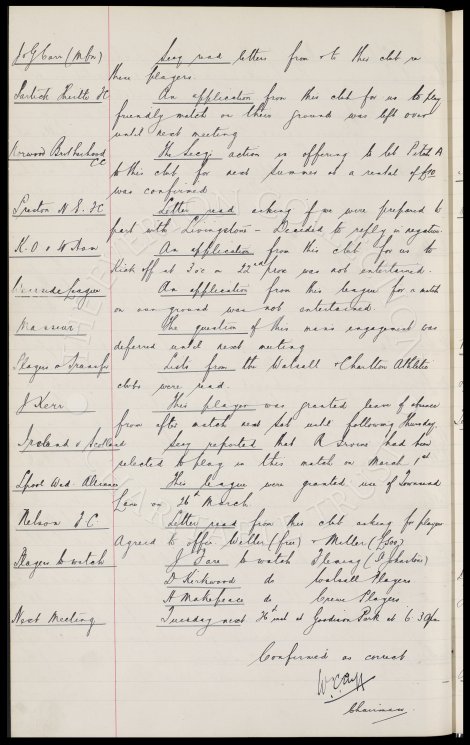 J & G Carr (Mbro) Secy read letters from & to this club re
these players.
Partick Thistle FC An application from this club for us to play
friendly match on their ground was left over
until next meeting
Norwood Brotherhood C.C. The Secy's action in offering to let Pitch A
to this club for next summer at a rental of £20
was confirmed
Preston N E. FC Letter read asking if we were prepared to
part with Livingstone - Decided to reply in negative.
K. O. v W Ham An application from this club for us to
kick off at 3oc on 22nd prox was not entertained.
League An application from this league for a match
on our ground was not entertained
Masseur The question of this mans engagement was
deferred until next meeting
Players o Transfer Lists from the Walsall & Charlton Athletic
clubs were read.
J Kerr This player was granted leave of absence
from after match next Sat until following Thursday.
Ireland v Scotland Secy reported that R Irvine had been
selected to play in this match on March 1st
Lpool Wed. Alliance This league were granted use of Townsend
Lane on 26th March
Nelson F.C. Letter read from this club asking for players
Agreed to offer Weller (free) & Miller (£500)
Players to watch J Fare to watch Fleming (St Johnstone)
D Kirkwood do Walsall Players
A Makepeace do Crewe Players
Next Meeting Tuesday next 26th inst at Goodison Park at 6.30pm
Confirmed as correct
W.C. Cuff
Chairman.